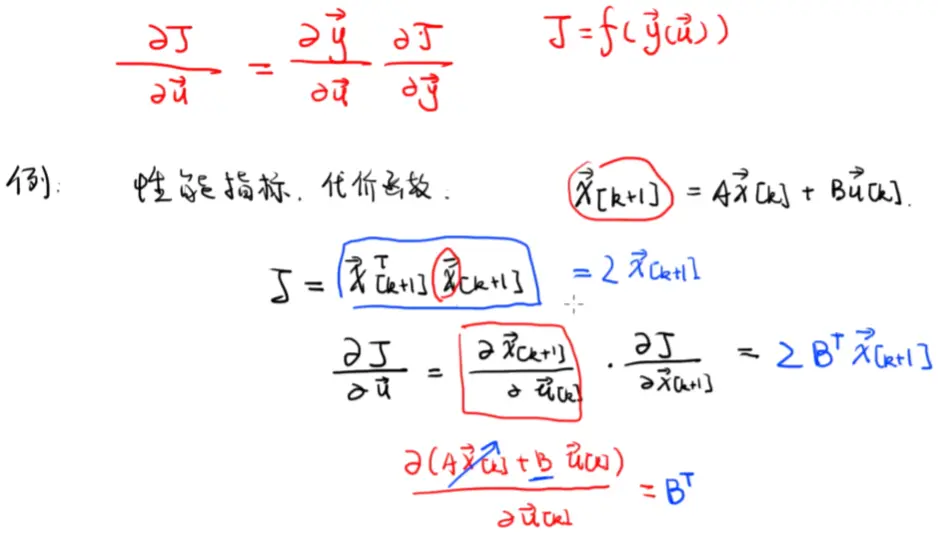 ∂J/∂u⃗ = ∂y⃗/∂u⃗ ∂J/∂y⃗  J=f(y⃗(u⃗))
例: 性能指标. 代价函数.  x⃗[k+1] = Ax⃗[k] + Bu⃗[k].
J = x⃗ᵀ[k+1] x⃗[k+1] = 2 x⃗[k+1]
∂J/∂u⃗ = ∂x⃗[k+1]/∂u⃗[k] · ∂J/∂x⃗[k+1] = 2 Bᵀ x⃗[k+1]
∂(Ax⃗[k] + B u⃗[k])/∂u⃗[k] = Bᵀ